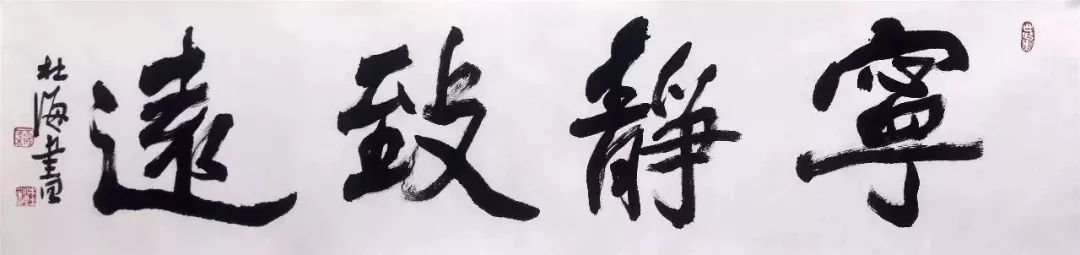 寧靜致遠
杜海書